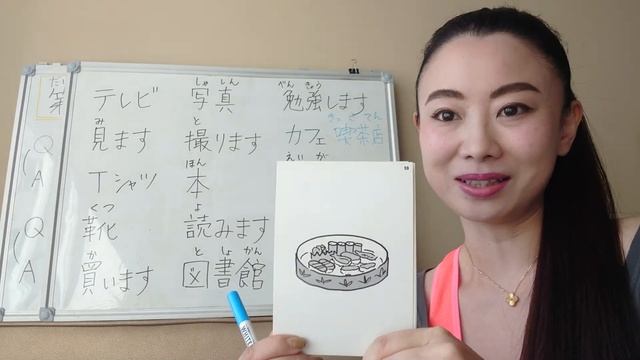 Q
A
Q
A
テレビ
み
見ます
Tシャツ
くつ
靴
か
買います
しゃ しん
写真
と
撮ります
ほん
本
よ
読みます
と しょ かん
図書館
べん きょう
勉強します
きっ さ てん
カフェ 喫茶店
えい が